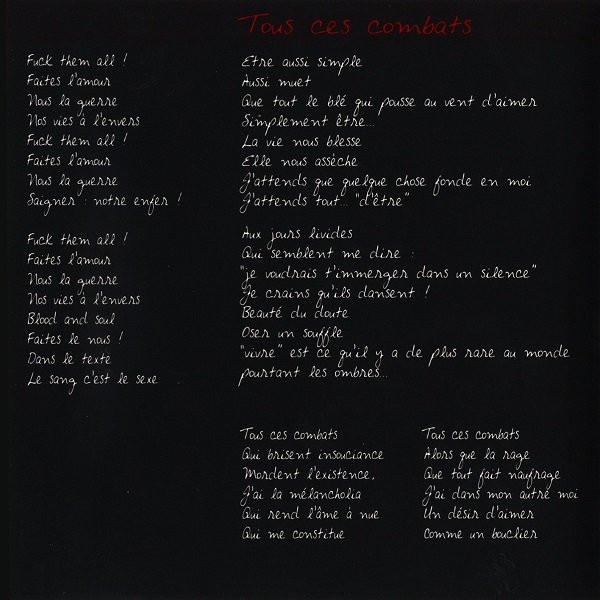 Tous ces combats
Fuck them all !
Faites l'amour
Nous la guerre
Nos vies à l'envers
Fuck them all !
Faites l'amour
Nous la guerre
Saigner : notre enfer !
Fuck them all !
Faites l'amour
Nous la guerre
Nos vies à l'envers
Blood and soul
Faites le nous !
Dans le texte
Le sang c'est le sexe
Etre aussi simple
Aussi muet
Que tout le blé qui pousse au vent d'aimer
Simplement être...
La vie nous blesse
Elle nous assèche
J'attends que quelque chose fonde en moi
J'attends tout... "d'être"
Aux jours livides
Qui semblent me dire :
"je voudrais t'immerger dans un silence"
Je crains qu'ils dansent !
Beauté du doute
Oser un souffle
"vivre" est ce qu'il y a de plus rare au monde
pourtant les ombres...
Tous ces combats
Qui brisent insouciance
Mordent l'existence,
J'ai la mélancholia
Qui rend l'âme à nue
Qui me constitue
Tous ces combats
Alors que la rage
Que tout fait naufrage
J'ai dans mon autre moi
Un désir d'aimer
Comme un bouclier